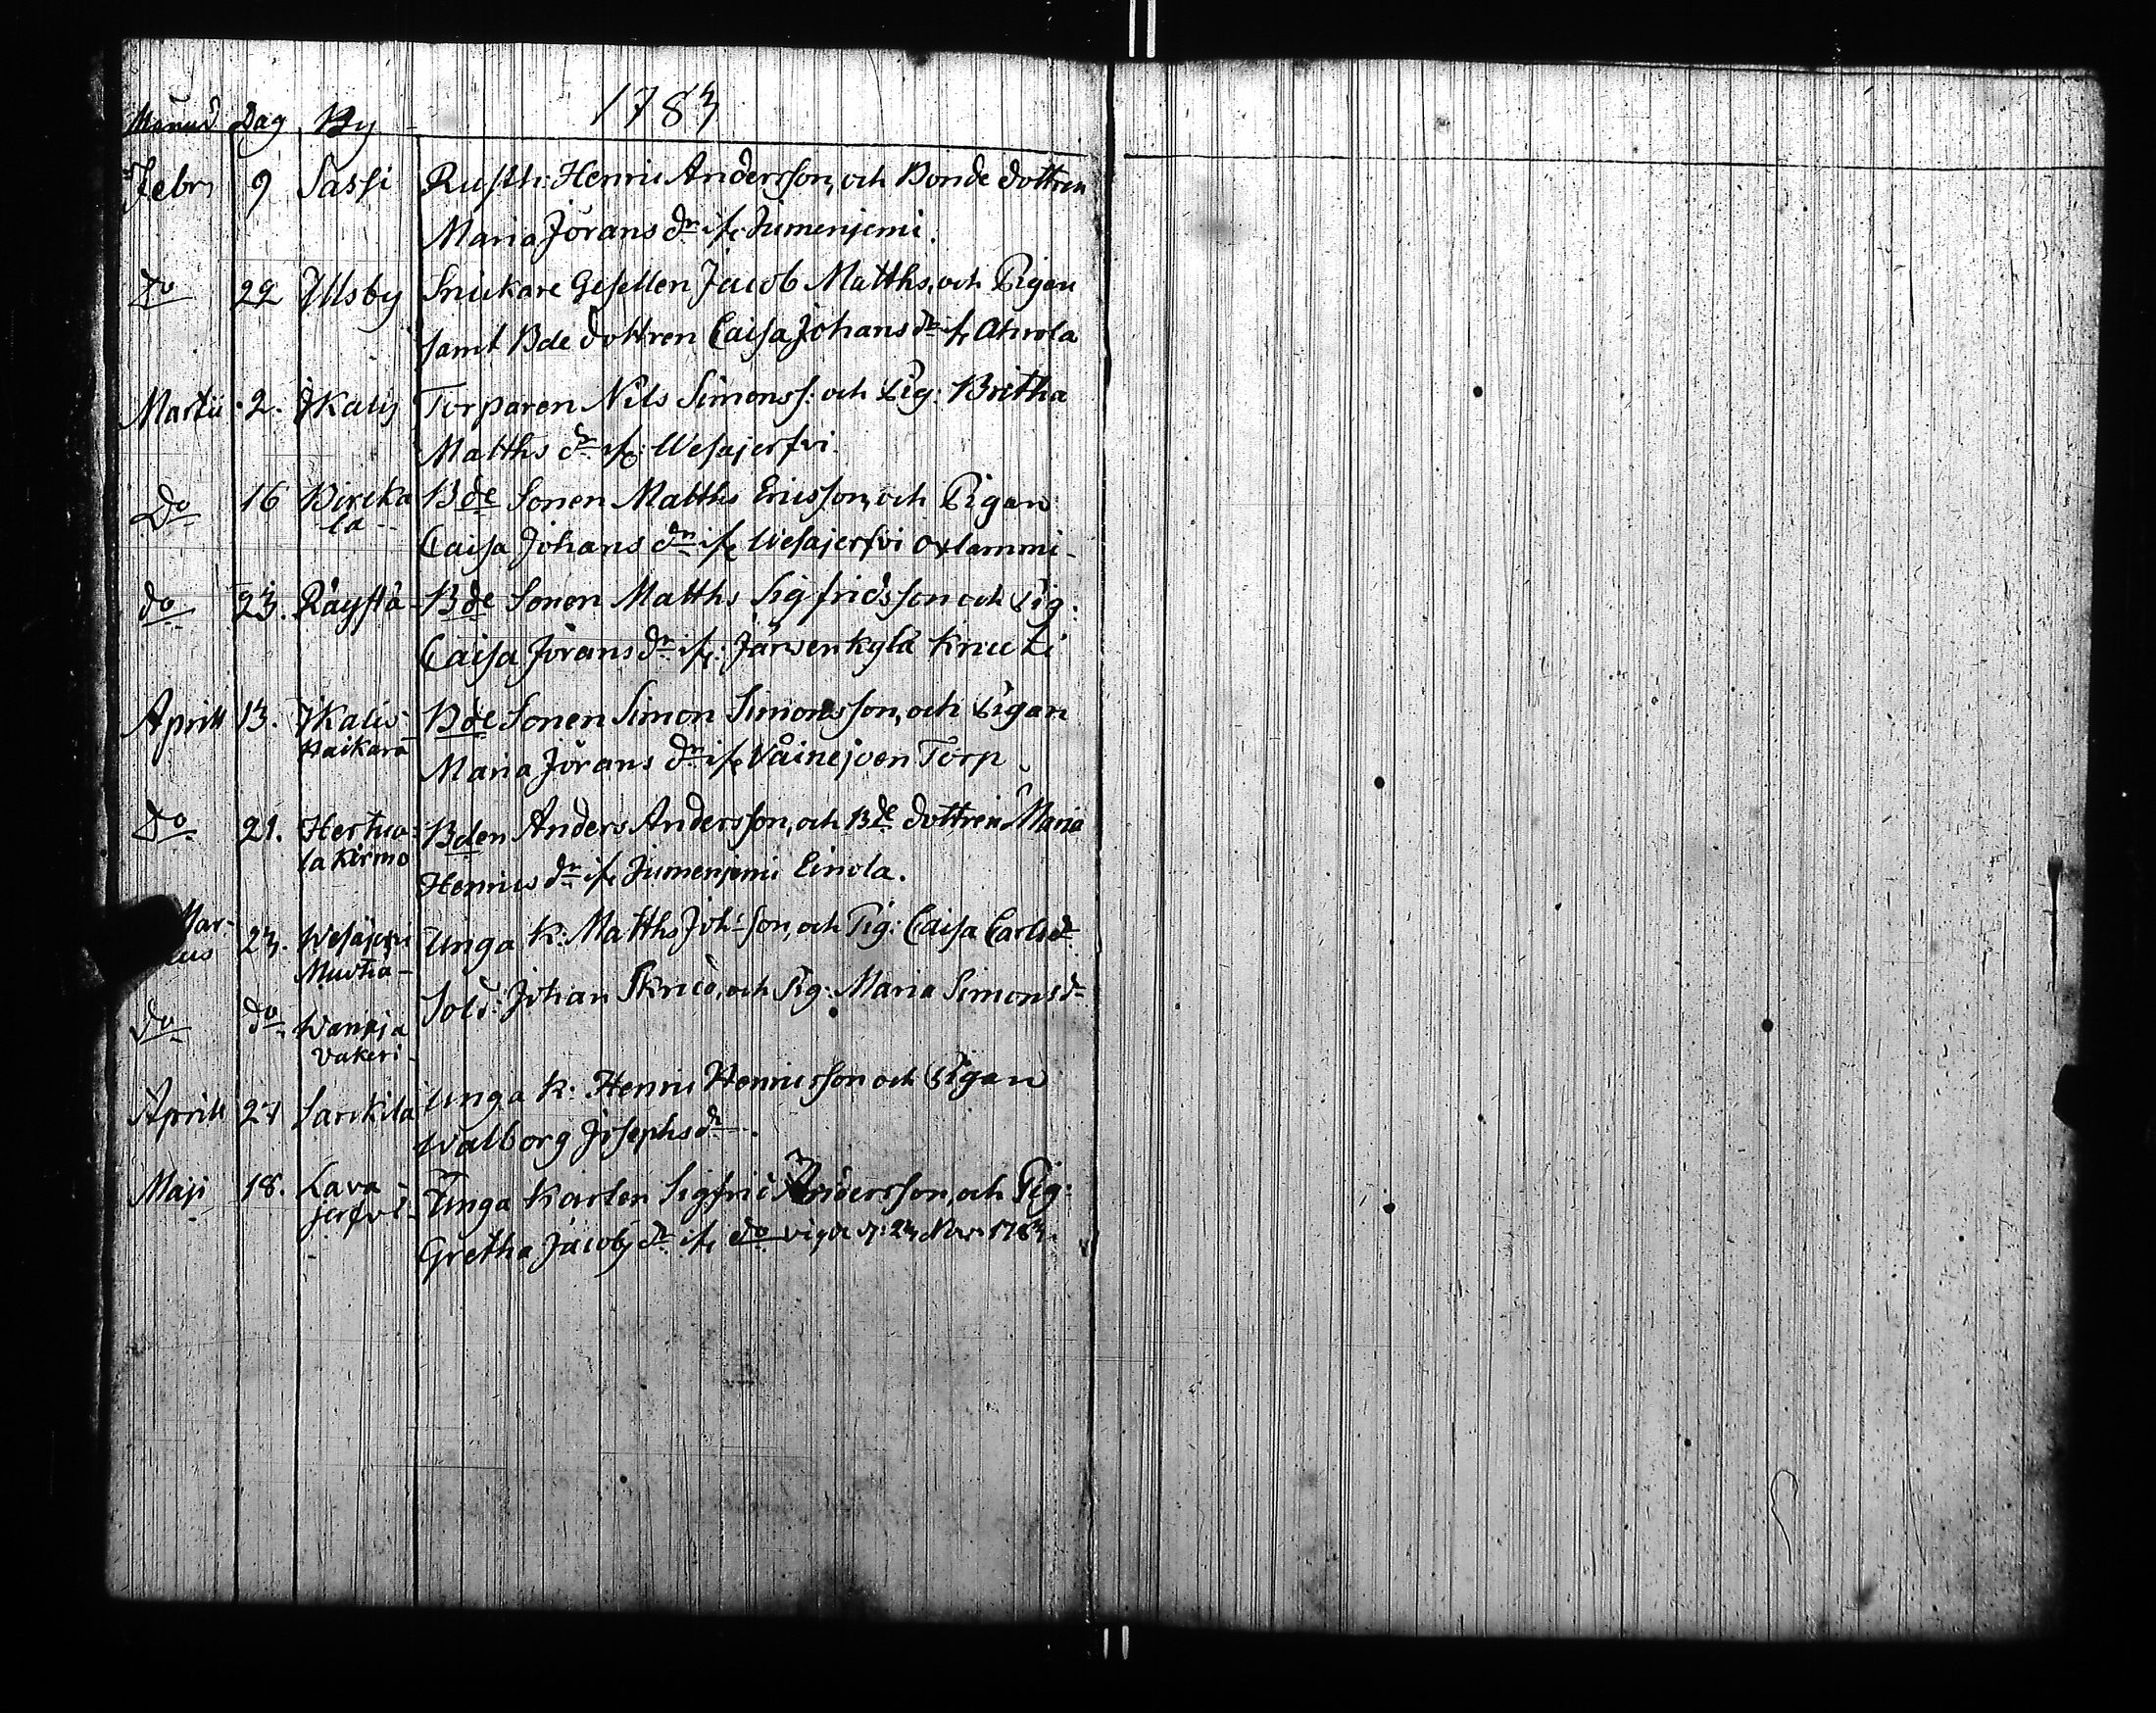 1783
Månad Dag By
Febr 9 Sassi Rusth: Henric Andersson, och Bonde dottren
Maria Jörans dr ifr Jumenjemi.
Do 22 Ulsby Snickare Gesellen Jacob Matths, och Pigan
samt Bde dottren Caisa Johans dr ifr Ahrola
Martii 2. Ikalis Torparen Nils Simonss: och Pig: Britha
Matths dr ifr: Wesajerfvi.
Do 16 Bircka Bde Sonen Matths Ericsson, och Pigan
la Caisa Johans dr ifr Wesajerfvi Oxlammi
do 23. Räystä Bde Sonen Matths Sigfridsson och Pig:
Caisa Jörans dr ifr: Järvenkylä
Aprill 13. Ikalis Bde Sonen Simon Simonsson, och Pigan
Paikara Maria Jörans dr ifr Torp
Do 21. Hertua Bden Anders Andersson, och Bde dottren Maria
la Kirmo Henrics dr ifr Jumenjemi Einola.
Mar- 23. Wesajerfvi Unga K: Matths Joh:son, och Pig: Caisa Carls dr
Muotia
Do do Sold: Johan och Pig: Maria Simons dr
Aprill 27 Sarkila Unga K: Henric Henricsson och Pigan
Walborg Josephs dr.
Maji 18. Lava Unga Karlen Sigfrid Andersson, och Pig:
jerfvi Gretha Jacobs dr ifr do vigde d: 23 Nov: 1783.